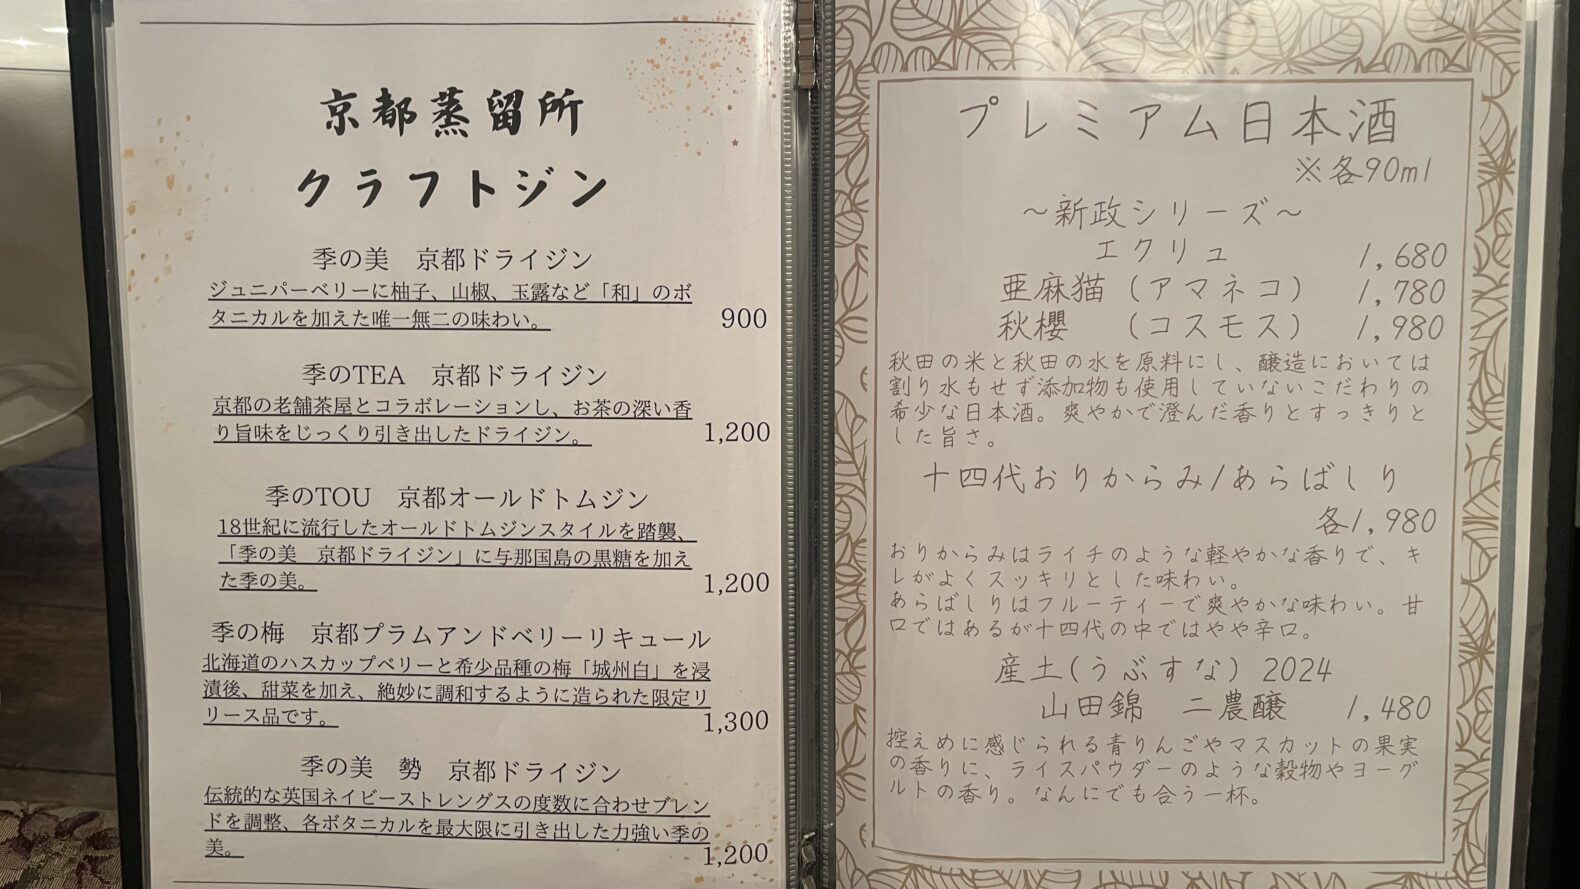 京都蒸留所
クラフトジン
季の美　京都ドライジン
ジュニパーベリーに柚子、山椒、玉露など「和」のボ
タニカルを加えた唯一無二の味わい。
900
季のTEA　京都ドライジン
京都の老舗茶屋とコラボレーションし、お茶の深い香
り旨味をじっくり引き出したドライジン。
1,200
季のTOU　京都オールドトムジン
18世紀に流行したオールドトムジンスタイルを踏襲、
「季の美　京都ドライジン」に与那国島の黒糖を加え
た季の美。
1,200
季の梅　京都プラムアンドベリーリキュール
北海道のハスカップベリーと希少品種の梅「城州白」を浸
漬後、甜菜を加え、絶妙に調和するように造られた限定リ
リース品です。
1,300
季の美　勢　京都ドライジン
伝統的な英国ネイビーストレングスの度数に合わせブレン
ドを調整、各ボタニカルを最大限に引き出した力強い季の
美。
1,200
プレミアム日本酒
※各90ml
～新政シリーズ～
エクリュ　1,680
亜麻猫（アマネコ）　1,780
秋櫻　（コスモス）　1,980
秋田の米と秋田の水を原料にし、醸造においては
割り水もせず添加物も使用していないこだわりの
希少な日本酒。爽やかで澄んだ香りとすっきりと
した旨さ。
十四代おりからみ/あらばしり
各1,980
おりからみはライチのような軽やかな香りで、キ
レがよくスッキリとした味わい。
あらばしりはフルーティーで爽やかな味わい。甘
口ではあるが十四代の中ではやや辛口。
産土(うぶすな) 2024
山田錦　二農醸　1,480
控えめに感じられる青りんごやマスカットの果実
の香りに、ライスパウダーのような穀物やヨーグ
ルトの香り。なんにでも合う一杯。